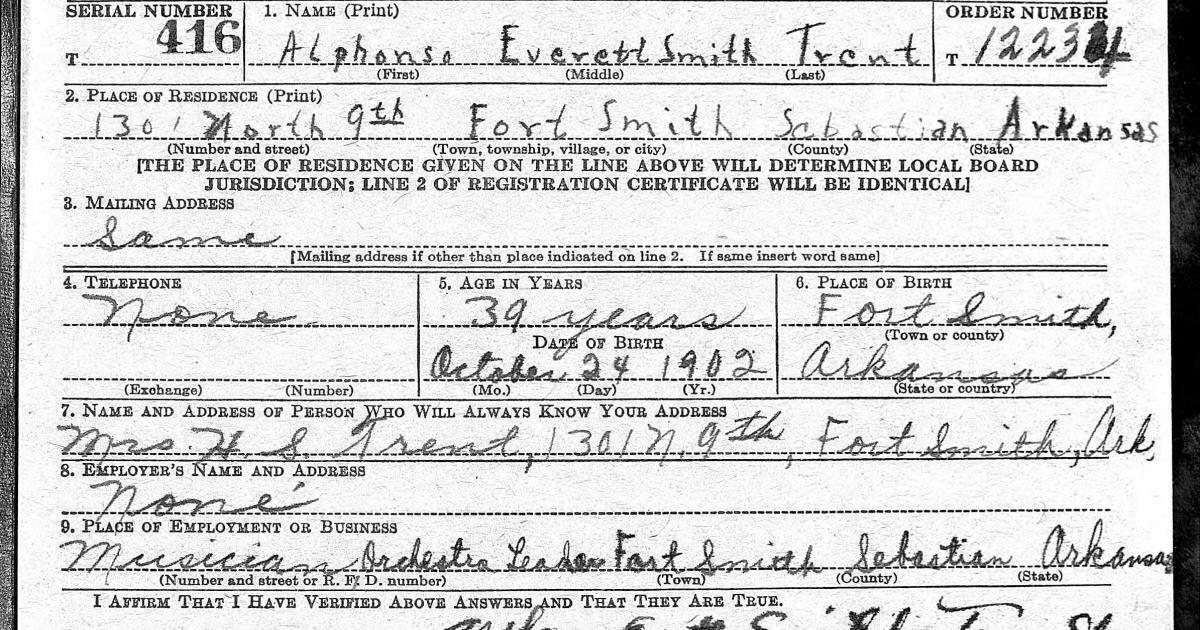 SERIAL NUMBER 1. NAME (Print) ORDER NUMBER
T 416 Alphonso Everett Smith Trent T 12234
(First) (Middle) (Last)
2. PLACE OF RESIDENCE (Print)
1301 North 9th Fort Smith Sebastian Arkansas
(Number and street) (Town, township, village, or city) (County) (State)
[THE PLACE OF RESIDENCE GIVEN ON THE LINE ABOVE WILL DETERMINE LOCAL BOARD
JURISDICTION; LINE 2 OF REGISTRATION CERTIFICATE WILL BE IDENTICAL]
3. MAILING ADDRESS
Same
[Mailing address if other than place indicated on line 2. If same insert word same]
4. TELEPHONE 5. AGE IN YEARS 6. PLACE OF BIRTH
None 39 years Fort Smith,
DATE OF BIRTH (Town or county)
October 24 1902 Arkansas
(Exchange) (Number) (Mo.) (Day) (Yr.) (State or country)
7. NAME AND ADDRESS OF PERSON WHO WILL ALWAYS KNOW YOUR ADDRESS
Mrs. H. S. Trent, 1301 N. 9th, Fort Smith, Ark,
8. EMPLOYER'S NAME AND ADDRESS
None
9. PLACE OF EMPLOYMENT OR BUSINESS
Musician Orchestra Leader Fort Smith Sebastian Arkansas
(Number and street or R. F. D. number) (Town) (County) (State)
I AFFIRM THAT I HAVE VERIFIED ABOVE ANSWERS AND THAT THEY ARE TRUE.